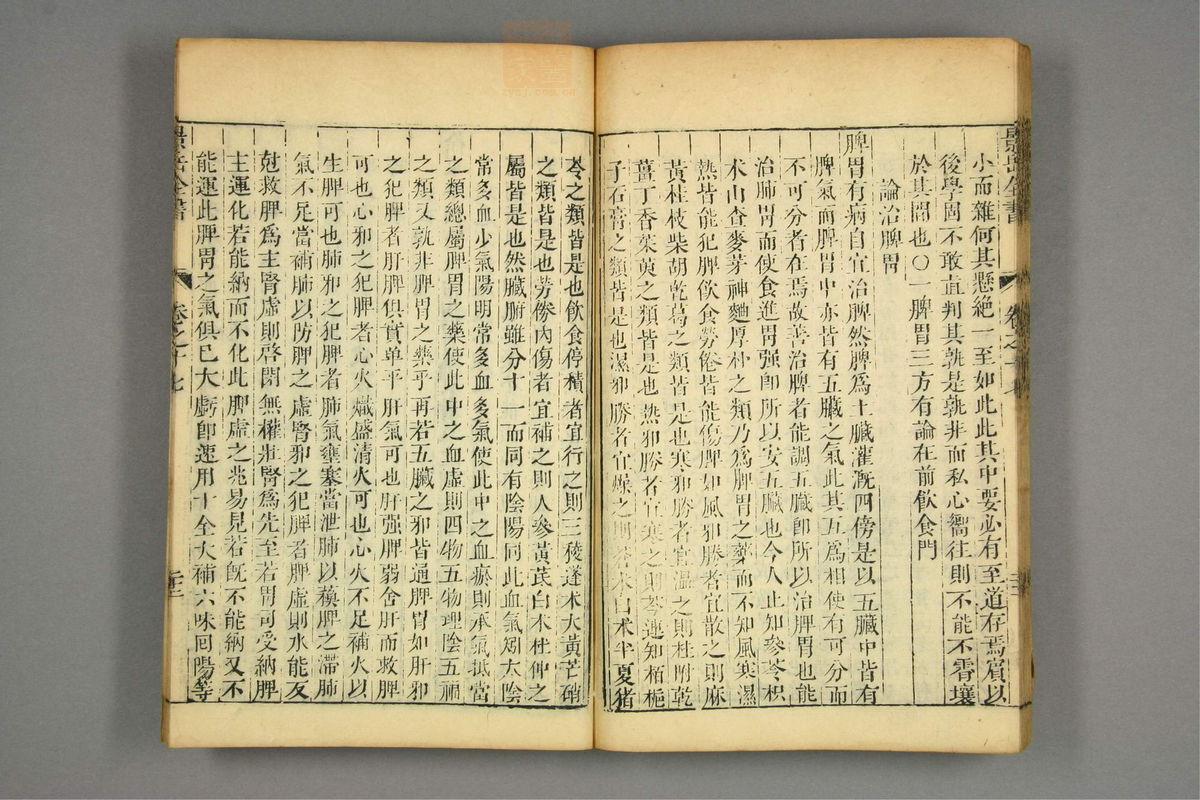 小而雜何其懸絶一至如此此其中要必有至道存焉賓以
後學固不敢直判其孰是孰非而私心嚮往則不能不霄壤
於其間也〇一脾胃三方有論在前飲食門
論治脾胃
脾胃有病自宜治脾然脾爲土臟灌溉四傍是以五臟中皆有
脾氣而脾胃中亦皆有五臟之氣此其互爲相使有可分而
不可分者在焉故善治脾者能調五臟卽所以治脾胃也能
治脾胃而使食進胃强卽所以安五臟也今人止知參苓枳
术山查麥芽神麯厚朴之類乃爲脾胃之藥而不知風寒濕
熱皆能犯脾飲食勞倦皆能傷脾如風邪勝者宜散之則麻
黃桂枝柴胡乾葛之類皆是也寒邪勝者宜温之則桂附乾
薑丁香茱萸之類皆是也熱邪勝者宜寒之則芩連知栢梔
子石膏之類皆是也濕邪勝者宜燥之則蒼术白术半夏猪
苓之類皆是也飲食停積者宜行之則三稜蓬术大黃芒硝
之類皆是也勞倦內傷者宜補之則人參黃芪白术杜仲之
屬皆是也然臟腑雖分十一而同有陰陽同此血氣矧太陰
常多血少氣陽明常多血多氣使此中之血瘀則承氣抵當
之類總屬脾胃之藥使此中之血虛則四物五物理陰五福
之類又孰非脾胃之藥乎再若五臟之邪皆通脾胃如肝邪
之犯脾者肝脾俱實單平肝氣可也肝强脾弱舍肝而救脾
可也心邪之犯脾者心火熾盛清火可也心火不足補火以
生脾可也肺邪之犯脾者肺氣壅塞當泄肺以蘇脾之滯肺
氣不足當補肺以防脾之虛腎邪之犯脾者脾虛則水能反
尅救脾爲主腎虛則啓閉無權壯腎爲先至若胃司受納脾
主運化若能納而不化此脾虛之兆易見若既不能納又不
能運此脾胃之氣俱已大虧卽速用十全大補六味回陽等
景岳全書
卷之十七